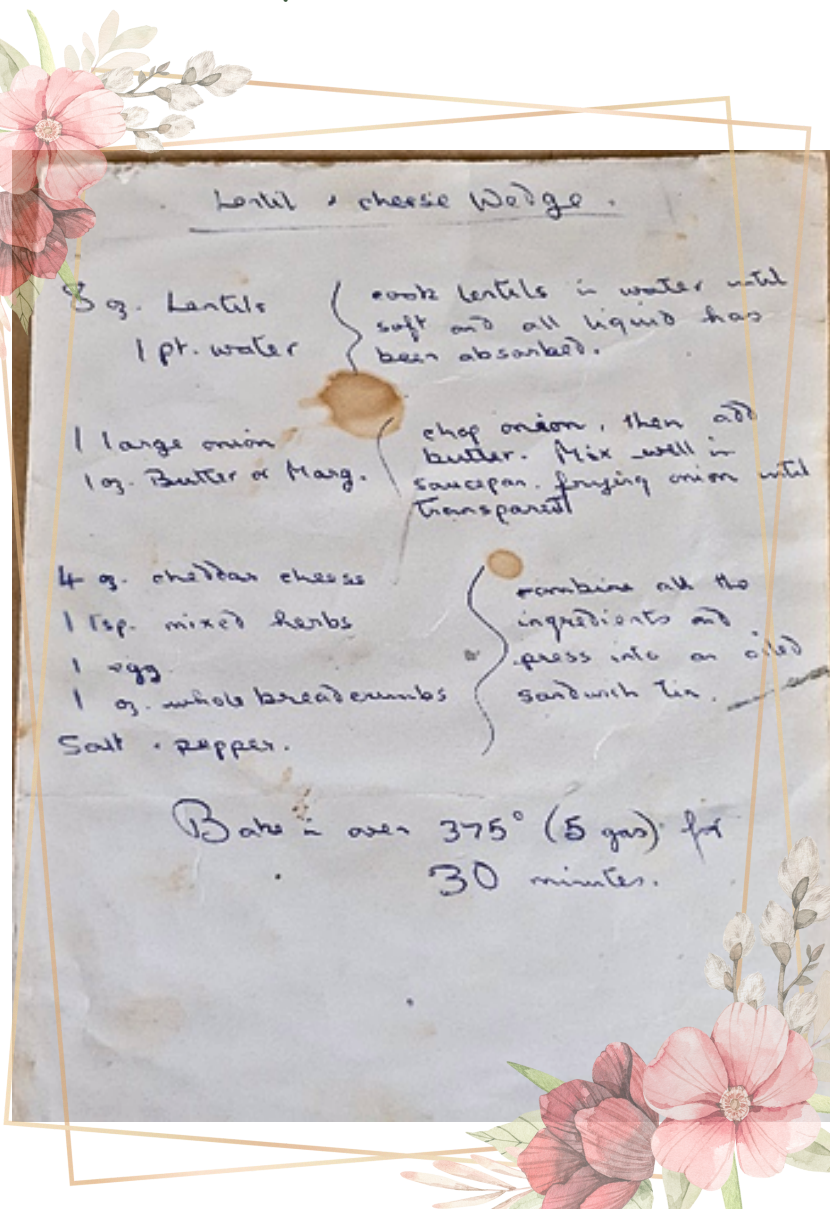 Lentil & cheese Wedge.
8 oz. Lentils
1 pt. water
cook lentils in water until
soft and all liquid has
been absorbed.
1 large onion
1 oz. Butter or Marg.
chop onion, then add
butter. Mix well in
saucepan. frying onion until
transparent
4 oz. cheddar cheese
1 Tsp. mixed herbs
1 egg.
1 oz. whole breadcrumbs
Salt & pepper.
combine all the
ingredients and
press into an oiled
sandwich tin.
Bake in oven 375° (5 gas) for
30 minutes.